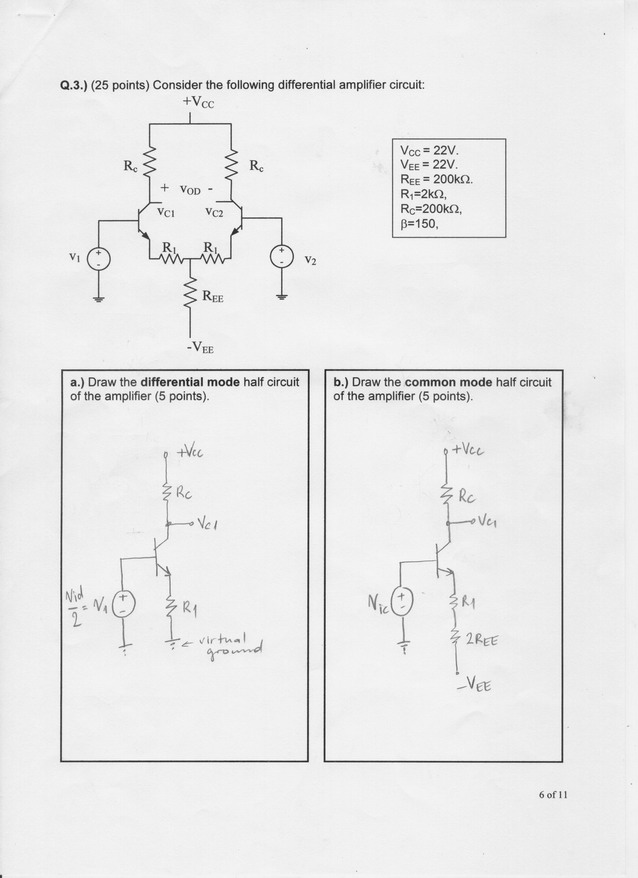 Q.3.) (25 points) Consider the following differential amplifier circuit:
+VCC
Rc
Rc
+ VOD -
VC1
VC2
R1
R1
V1
V2
REE
-VEE
VCC = 22V.
VEE = 22V.
REE = 200kΩ.
R1=2kΩ,
RC=200kΩ,
β=150,
a.) Draw the differential mode half circuit
of the amplifier (5 points).
+Vcc
Rc
Vc1
Vid/2 = V1
+
-
R1
← virtual
ground
b.) Draw the common mode half circuit
of the amplifier (5 points).
+Vcc
Rc
Vc1
Vic
+
-
R1
2REE
-VEE
6 of 11